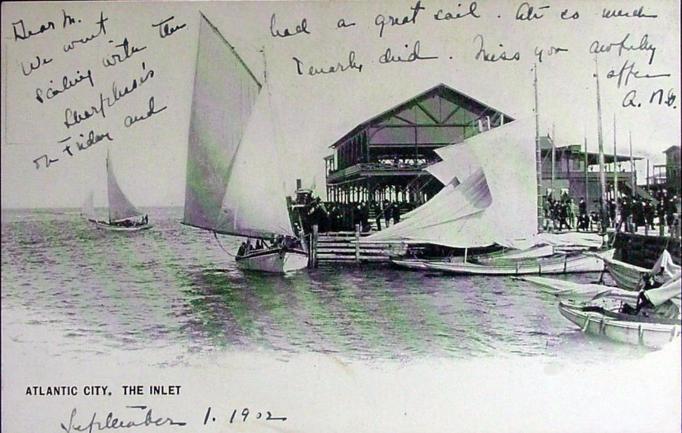 Dear M.
We went
sailing with the
Sharpless's
on Friday and
had a great sail. Ate so much
I nearly died. Miss you awfully
often
A. M.
ATLANTIC CITY. THE INLET
September 1. 1902